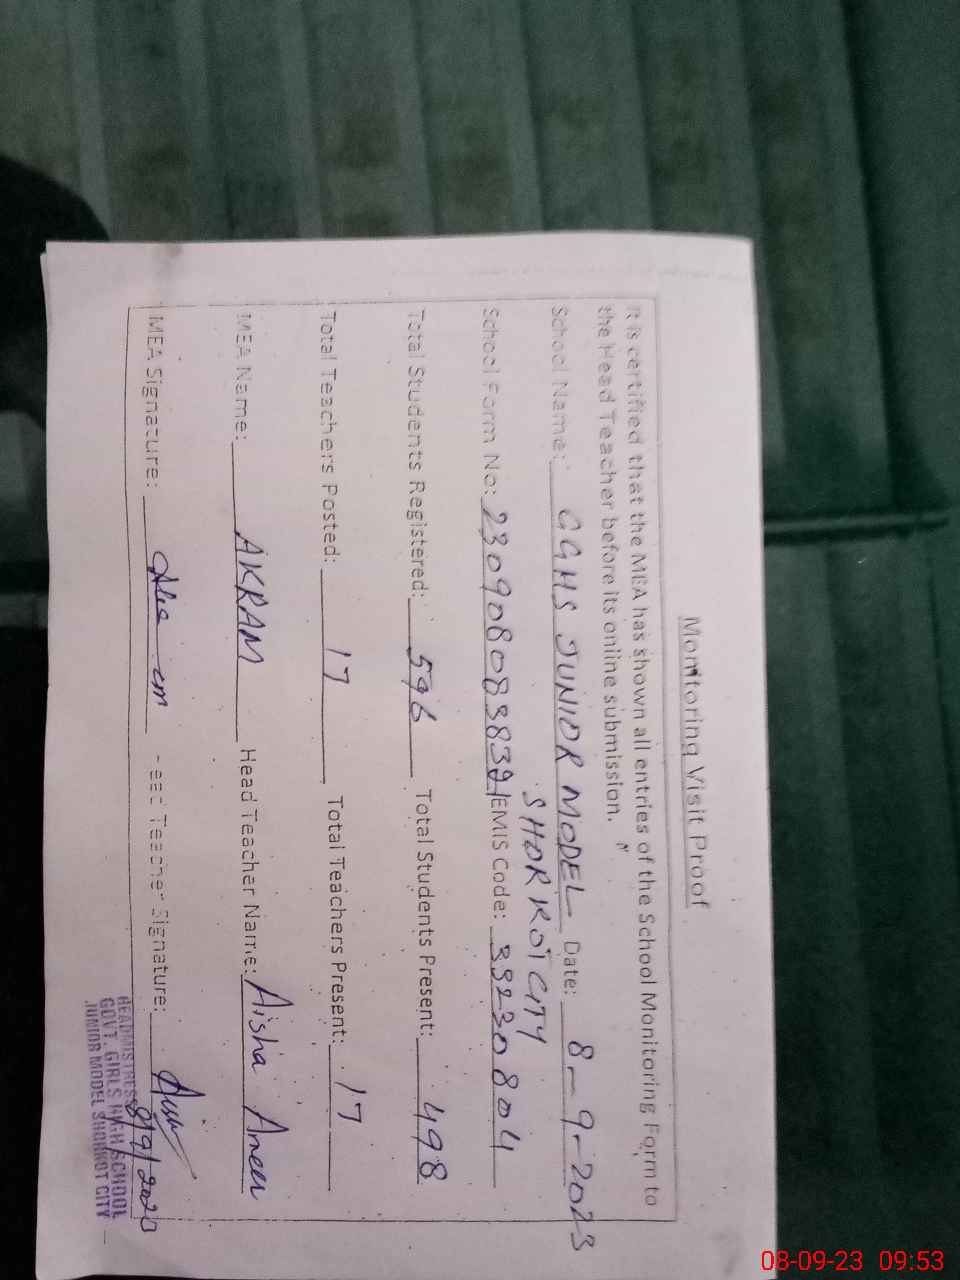 Monitoring Visit Proof
It is certified that the MEA has shown all entries of the School Monitoring Form to
the Head Teacher before its online submission.
School Name: GGHS JUNIOR MODEL Date: 8-9-2023
SHORKOT CITY
School Form No: EMIS Code: 33230804
Total Students Registered: 596 Total Students Present: 498
Total Teachers Posted: 17 Total Teachers Present: 17
MEA Name: AKRAM Head Teacher Name: Aisha Ameer
MEA Signature: Head Teacher Signature:
HEADMISTRESS
GOVT. GIRLS HIGH SCHOOL
JUNIOR MODEL SHORKOT CITY
08-09-23 09:53